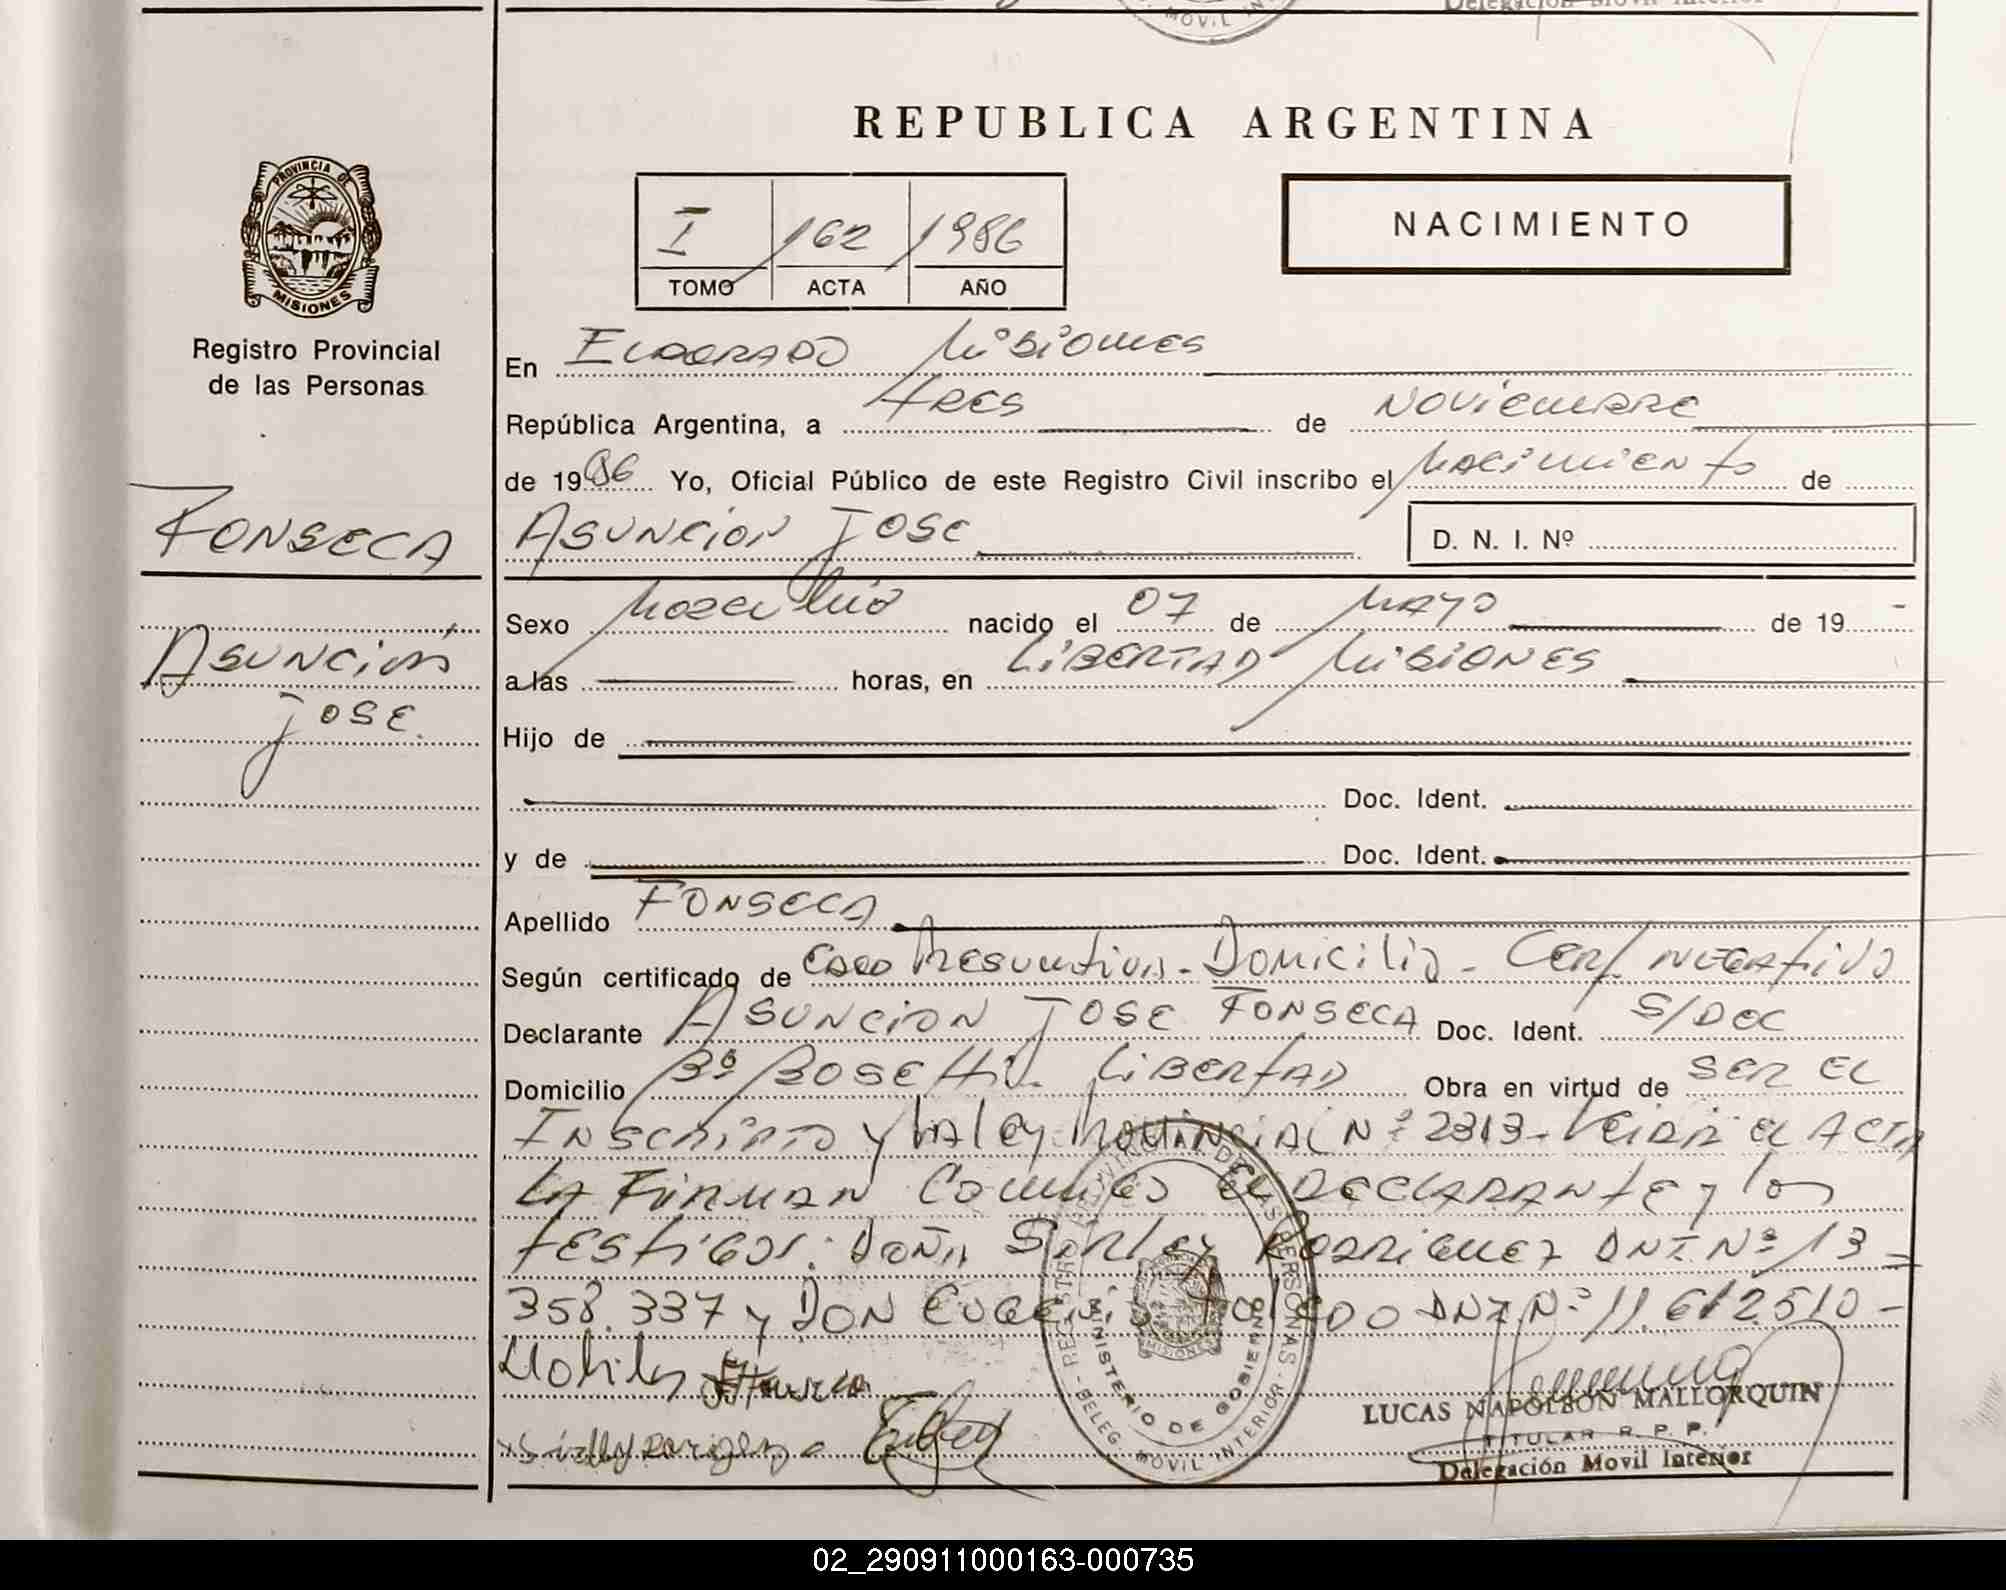 MOVIL
Delegación Movil Interior
REPUBLICA ARGENTINA
PROVINCIA DE
MISIONES
NACIMIENTO
I 162 1986
TOMO ACTA AÑO
Registro Provincial
de las Personas
En ELDORADO MISIONES
República Argentina, a TRES de NOVIEMBRE
de 1986 Yo, Oficial Público de este Registro Civil inscribo el NACIMIENTO de
FONSECA
ASUNCION JOSE
D. N. I. Nº
Sexo MASCULINO nacido el 07 de MAYO de 19 -
ASUNCION
a las horas, en LIBERTAD MISIONES
JOSE.
Hijo de
Doc. Ident.
y de Doc. Ident.
Apellido FONSECA
Según certificado de EDAD PRESUNTIVA - DOMICILIO - CERT NEGATIVO
Declarante ASUNCION JOSE FONSECA Doc. Ident. S/DOC
Domicilio Bº ROSETTI. LIBERTAD Obra en virtud de SER EL
INSCRIPTO Y LA LEY PROVINCIAL Nº 2313- LEIDA EL ACTA
LA FIRMAN CONMIGO EL DECLARANTE y los
TESTIGOS: DOÑA SIRLEY RODRIGUEZ DNI Nº 13-
358.337 y DON EUGENIO TOLEDO DNI Nº 11.612.510-
REGISTRO PROVINCIAL DE LAS PERSONAS - DELEG. MOVIL INTERIOR -
MINISTERIO DE GOBIERNO
MISIONES
LUCAS NAPOLEON MALLORQUIN
TITULAR R. P. P.
Delegación Movil Interior
02_290911000163-000735